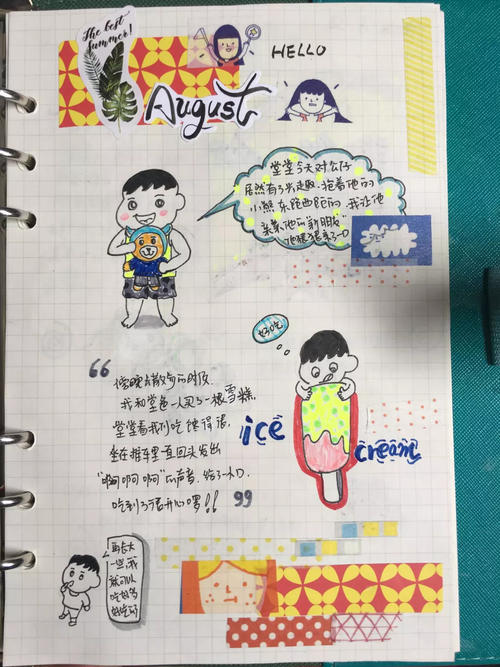 The best
Summer!
HELLO
August
堂堂今天对公仔
居然有了兴趣,抱着他的
小熊东跑西跑的,我让他
亲亲他的“新朋友”
他狠狠亲了一口
好吃
“
傍晚去散步的时候,
我和堂爸一人买了一根雪糕,
堂堂看我们吃馋得很,
坐在推车里直回头发出
“啊啊啊”的声音,给了一口,
吃到了很开心啰!!
”
ice
cream
再长大
一些,我
就可以
吃好多
好吃的